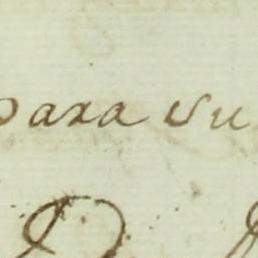 para su